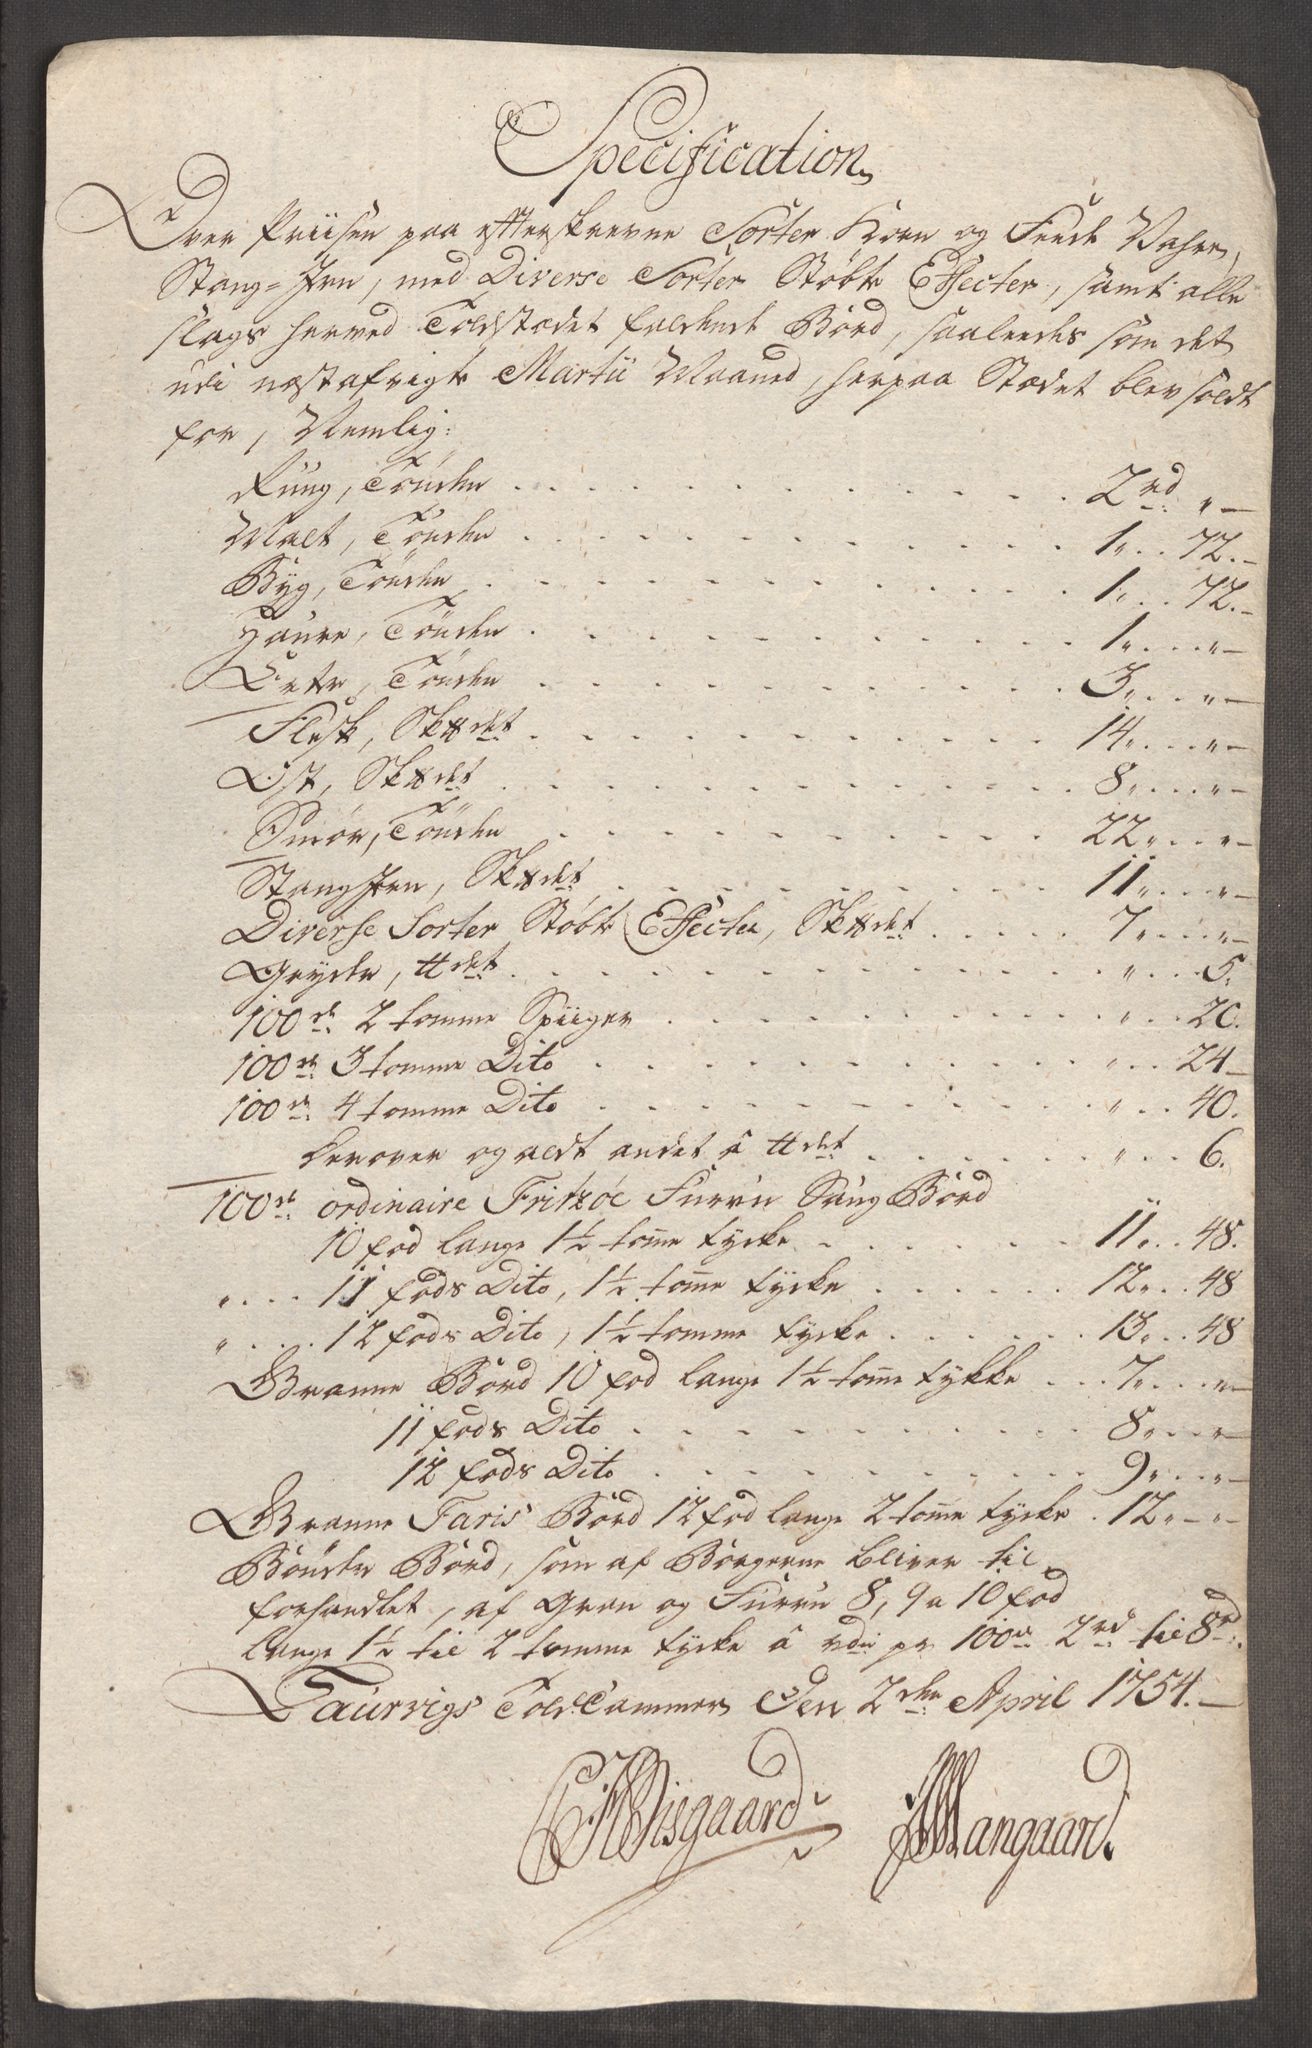 Specification
Over Priisen paa efterskrevne Sorter Korn og Feede Vahrer,
Stang-Jern, med Diverse Sorter Støbte Effecter, samt alle
slags herved Toldstædet faldende Bord, saaledes som det
udi næstafvigte Martii Maaned, herpaa Stædet blev soldt
for, Nemlig:
Rüg, Tönden . . . 2 rd „ —
Malt, Tönden . . . 1 „ . . 72. —
Byg, Tönden . . . 1 „ . . 72. —
Haure, Tönden . . . 1 „ . . „ —
Erter, Tönden . . . 3 „ . . „ —
Flesk, Sk℔det . . . 14 „ . . „ —
Ost, Sk℔det . . . 8 „ . . „ —
Smör, Tönden . . . 22 „ . . „ —
Stang Jern, Sk℔det . . . 11 „ . . „ —
Diverse Sorter Støbte Effecter, Sk℔det . . . 7 „ . . „ —
Gryder, ℔det . . . „ . . 5.
100de 2 tomme Spiiger . . . „ . . 20.
100de 3 tomme Dito . . . „ . . 24 —
100de 4 tomme Dito . . . „ . . 40.
derover og aldt andet â ℔det . . . „ . . 6.
100de ordinaire Fritzöe Furru Saug Bord
10 fod lange 1½ tome tycke . . . 11 „ . . 48.
„ . . . 11 fods Dito, 1½ tome tycke . . . 12 „ . . 48
„ . . . 12 fods Dito, 1½ tomme tycke . . . 13 „ . . 48
Granne Bord 10 fod lange 1½ tome tykke . . . 7 „ . . „ —
11 fods Dito . . . 8 „ . . „ —
12 fods Dito . . . 9 „ . . „ —
Granne Faris Bord 12 fod lange 2 tome tycke . 12 „ — „ —
Bönder Bord, som af Borgerne bliver til
forhandlet, af Gran og Furru 8, 9 a 10 fod
lange 1½ til 2 tomme tycke â pr 100de 2 rd til 8 rd.
Laurvigs Told Cammer, Den 2den April 1754. —
Wisgaard Mangaard.